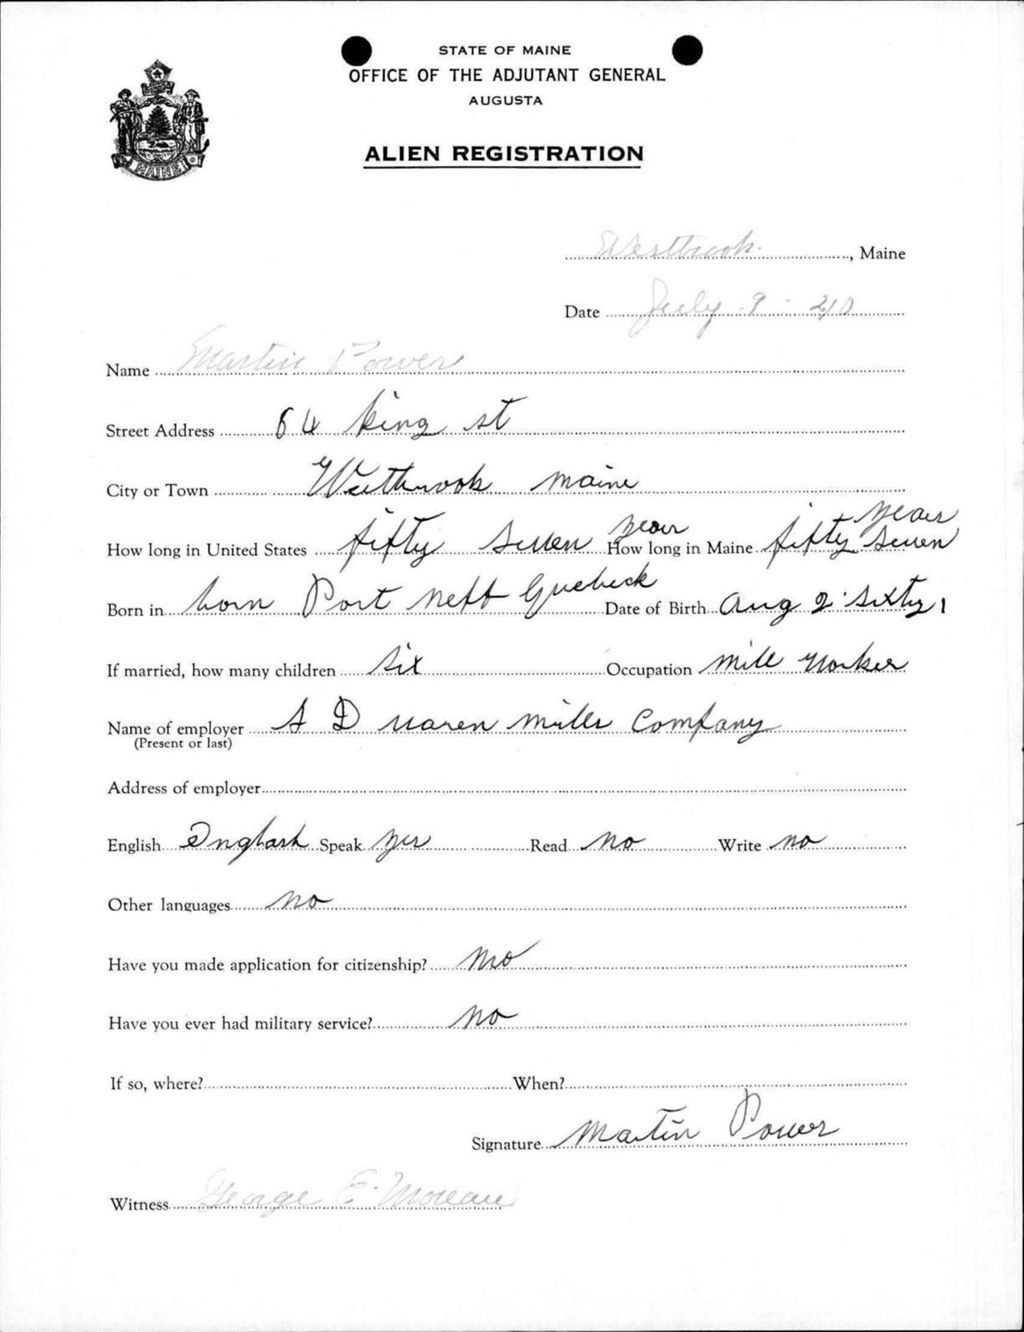 STATE OF MAINE
OFFICE OF THE ADJUTANT GENERAL
AUGUSTA
ALIEN REGISTRATION
MAINE
Westbrook, Maine
Date July 9 - 40
Name Martin Power
Street Address 64 King st
City or Town Westbrook Maine
How long in United States fifty seven year How long in Maine fifty seven year
Born in born Port Neff Quebeck Date of Birth Aug 2 sixty 1
If married, how many children Six Occupation mill worker
Name of employer S D waren mills Company
(Present or last)
Address of employer
English Inglash Speak yes Read no Write no
Other languages no
Have you made application for citizenship? no
Have you ever had military service? no
If so, where? When?
Signature Martin Power
Witness George E. Moreau